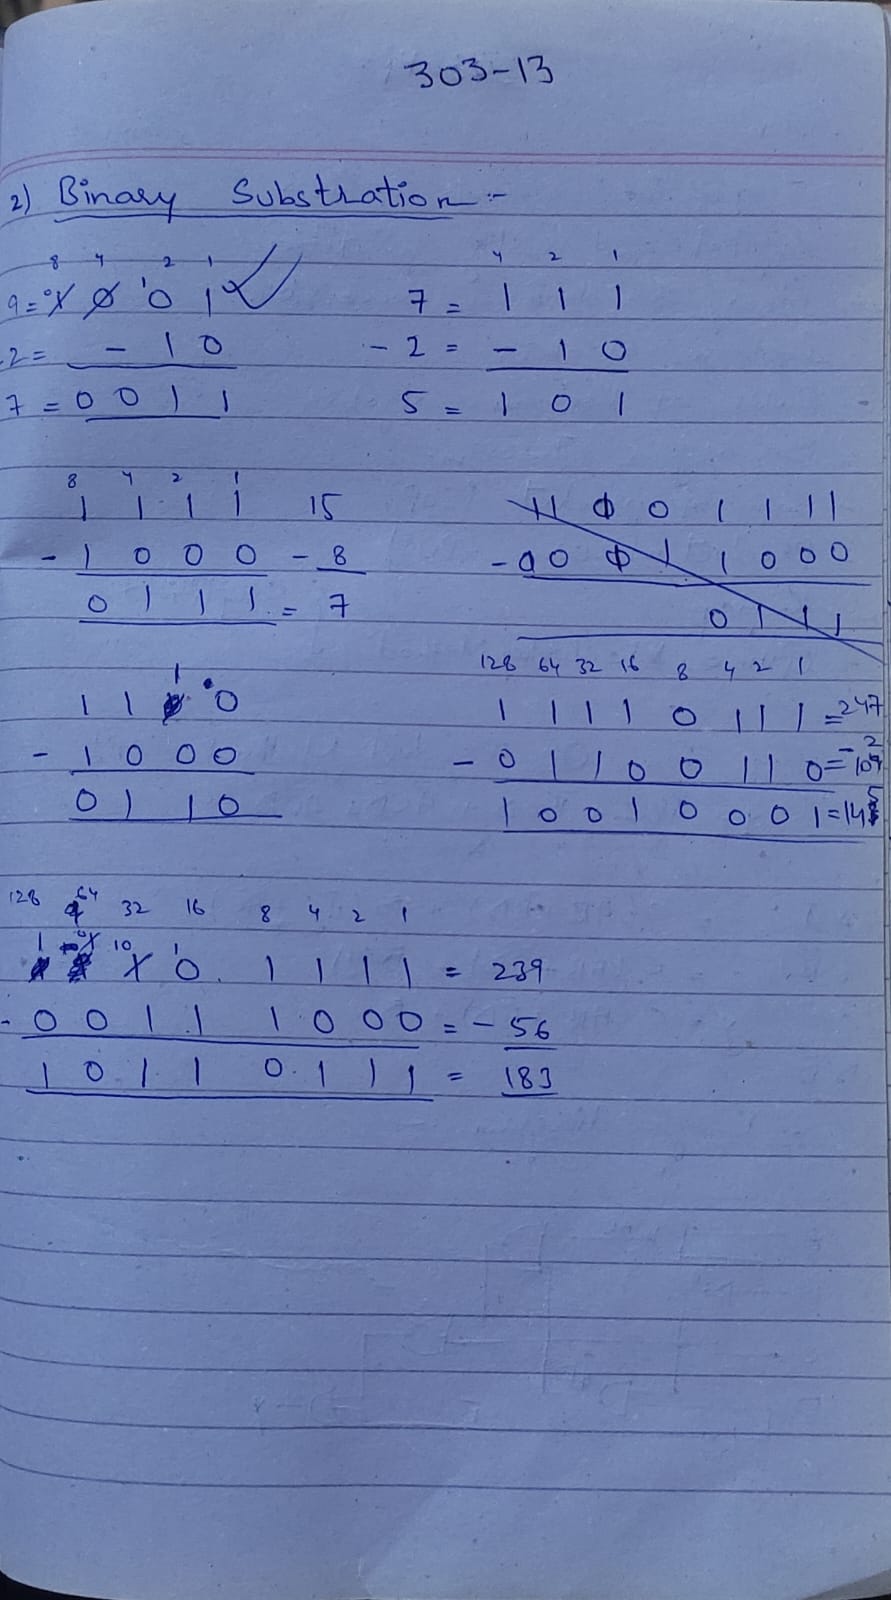 303-13
2) Binary Substration :-
8 4 2 1
9 = 0 1 0 1 0 1
-2 = - 1 0
7 = 0 0 1 1
4 2 1
7 = 1 1 1
- 2 = - 1 0
5 = 1 0 1
8 4 2 1
1 1 1 1 15
- 1 0 0 0 - 8
0 1 1 1 = 7
0 1 1 1 1
1 0 0 0
0 1 1 1
1
1 1 0
- 1 0 0 0
0 1 1 0
128 64 32 16 8 4 2 1
1 1 1 1 0 1 1 1 = 247
- 0 1 1 0 0 1 1 0 = - 102
1 0 0 1 0 0 0 1 = 145
128 64 32 16 8 4 2 1
1 0 10 1
1 0 1 1 1 1 = 239
- 0 0 1 1 1 0 0 0 = - 56
1 0 1 1 0 1 1 1 = 183